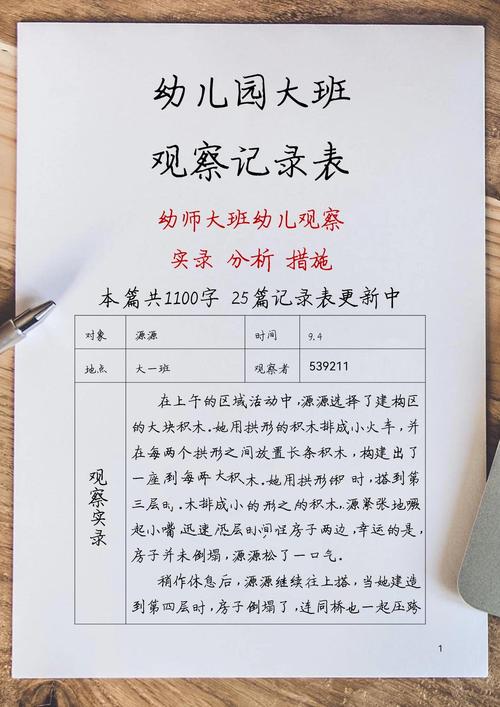 幼儿园大班
观察记录表
幼师大班幼儿观察
实录 分析 措施
本篇共1100字 25篇记录表更新中
对象 源源 时间 9.4
地点 大一班 观察者 539211
观察实录
在上午的区域活动中,源源选择了建构区
的大块积木.她用拱形的积木排成小火车,并
在每两个拱形之间放置长条积木,构建出了
一座到每两大积木.她用拱形 时,搭到第
三层时.木排成小的形之的积木,.源紧张地噘
起小嘴 迅速 层时间 房子两边,幸运的是,
房子并未倒塌,源源松了一口气。
稍作休息后,源源继续往上搭,当她建造
到第四层时,房子倒塌了,连同桥也一起压跨
1